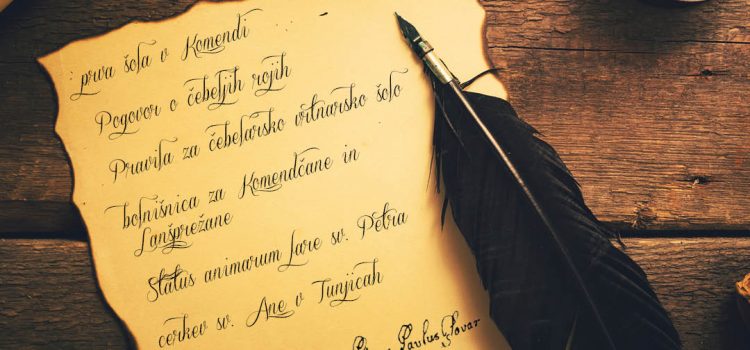 prva šola v Komendi
Pogovor o čebeljih rojih
Pravila za čebelarsko vrtnarsko šolo
bolnišnica za Komendčane in
Lanšprežane
Status animarum fare sv. Petra
cerkev sv. Ane v Tunjicah
Paulus